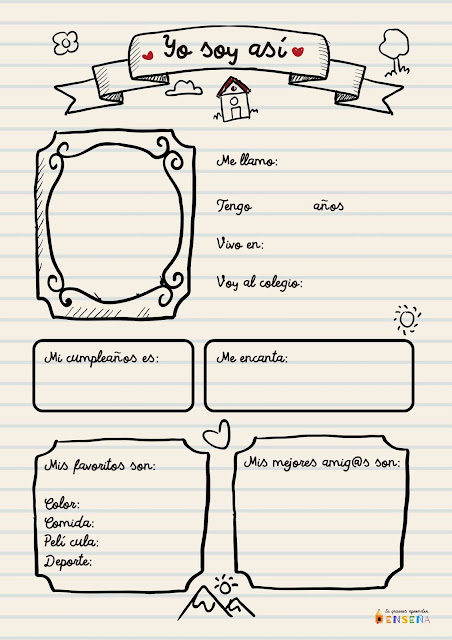 Yo soy así
Me llamo:
Tengo años
Vivo en:
Voy al colegio:
Mi cumpleaños es:
Me encanta:
Mis favoritos son:
Color:
Comida:
Pelí cula:
Deporte:
Mis mejores amig@s son:
ENSEÑA